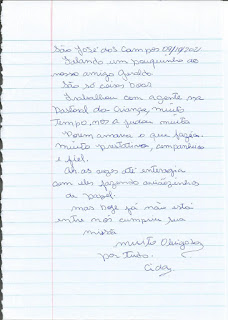 São José dos Campos 09/10/2021
Falando um pouquinho do
nosso amigo Geraldo.
São só coisas boas
Trabalhou com agente na
Pastoral da Criança, muito
tempo, nos ajudou muito
Porem amava o que fazia.
muito prestativo, companheiro
e fiel.
As vezes até interagia
com eles fazendo aviãozinho
de papel.
mas hoje já não está
entre nós cumpriu sua
missão
muito Obrigado
por tudo.
Cida